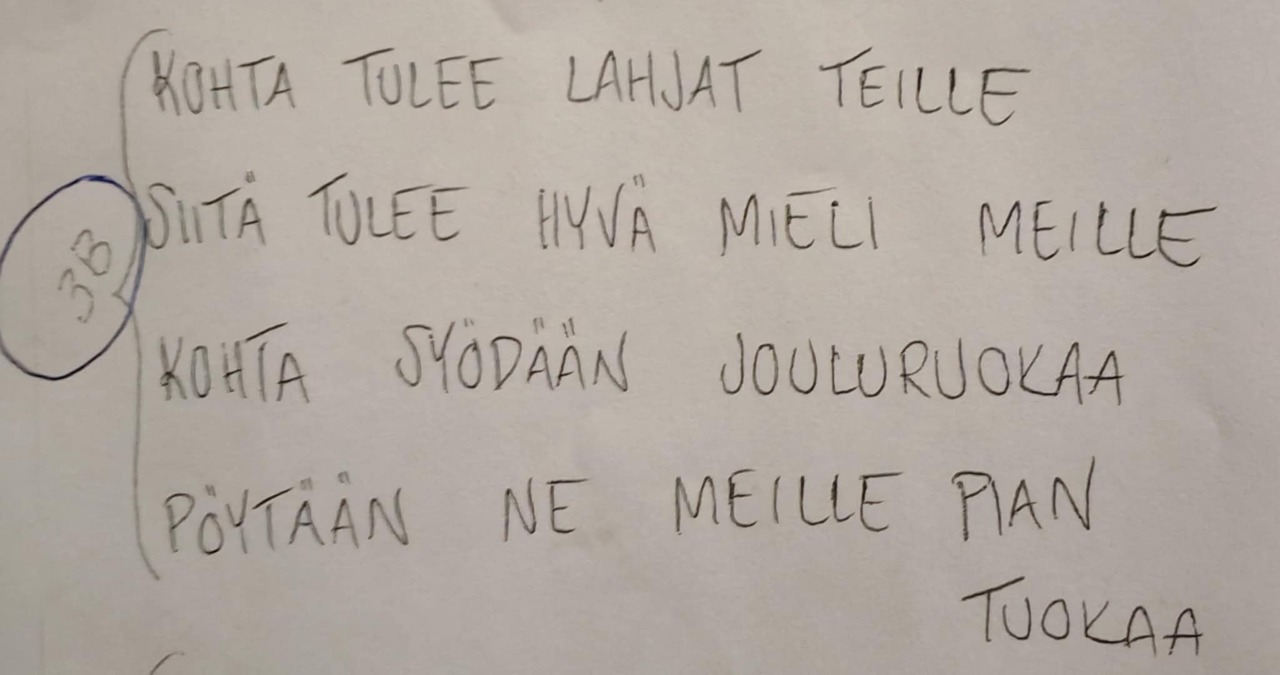 KOHTA TULEE LAHJAT TEILLE
3B
SIITÄ TULEE HYVÄ MIELI MEILLE
KOHTA SYÖDÄÄN JOULURUOKAA
PÖYTÄÄN NE MEILLE PIAN
TUOKAA